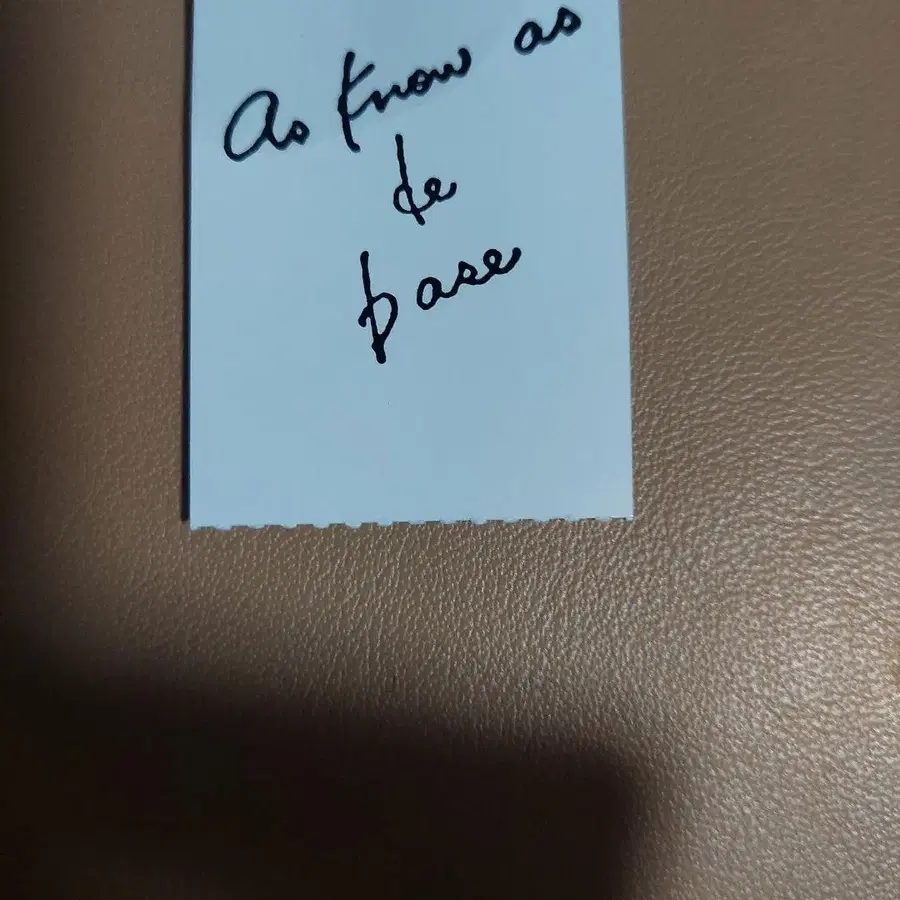 As Know as
de
base